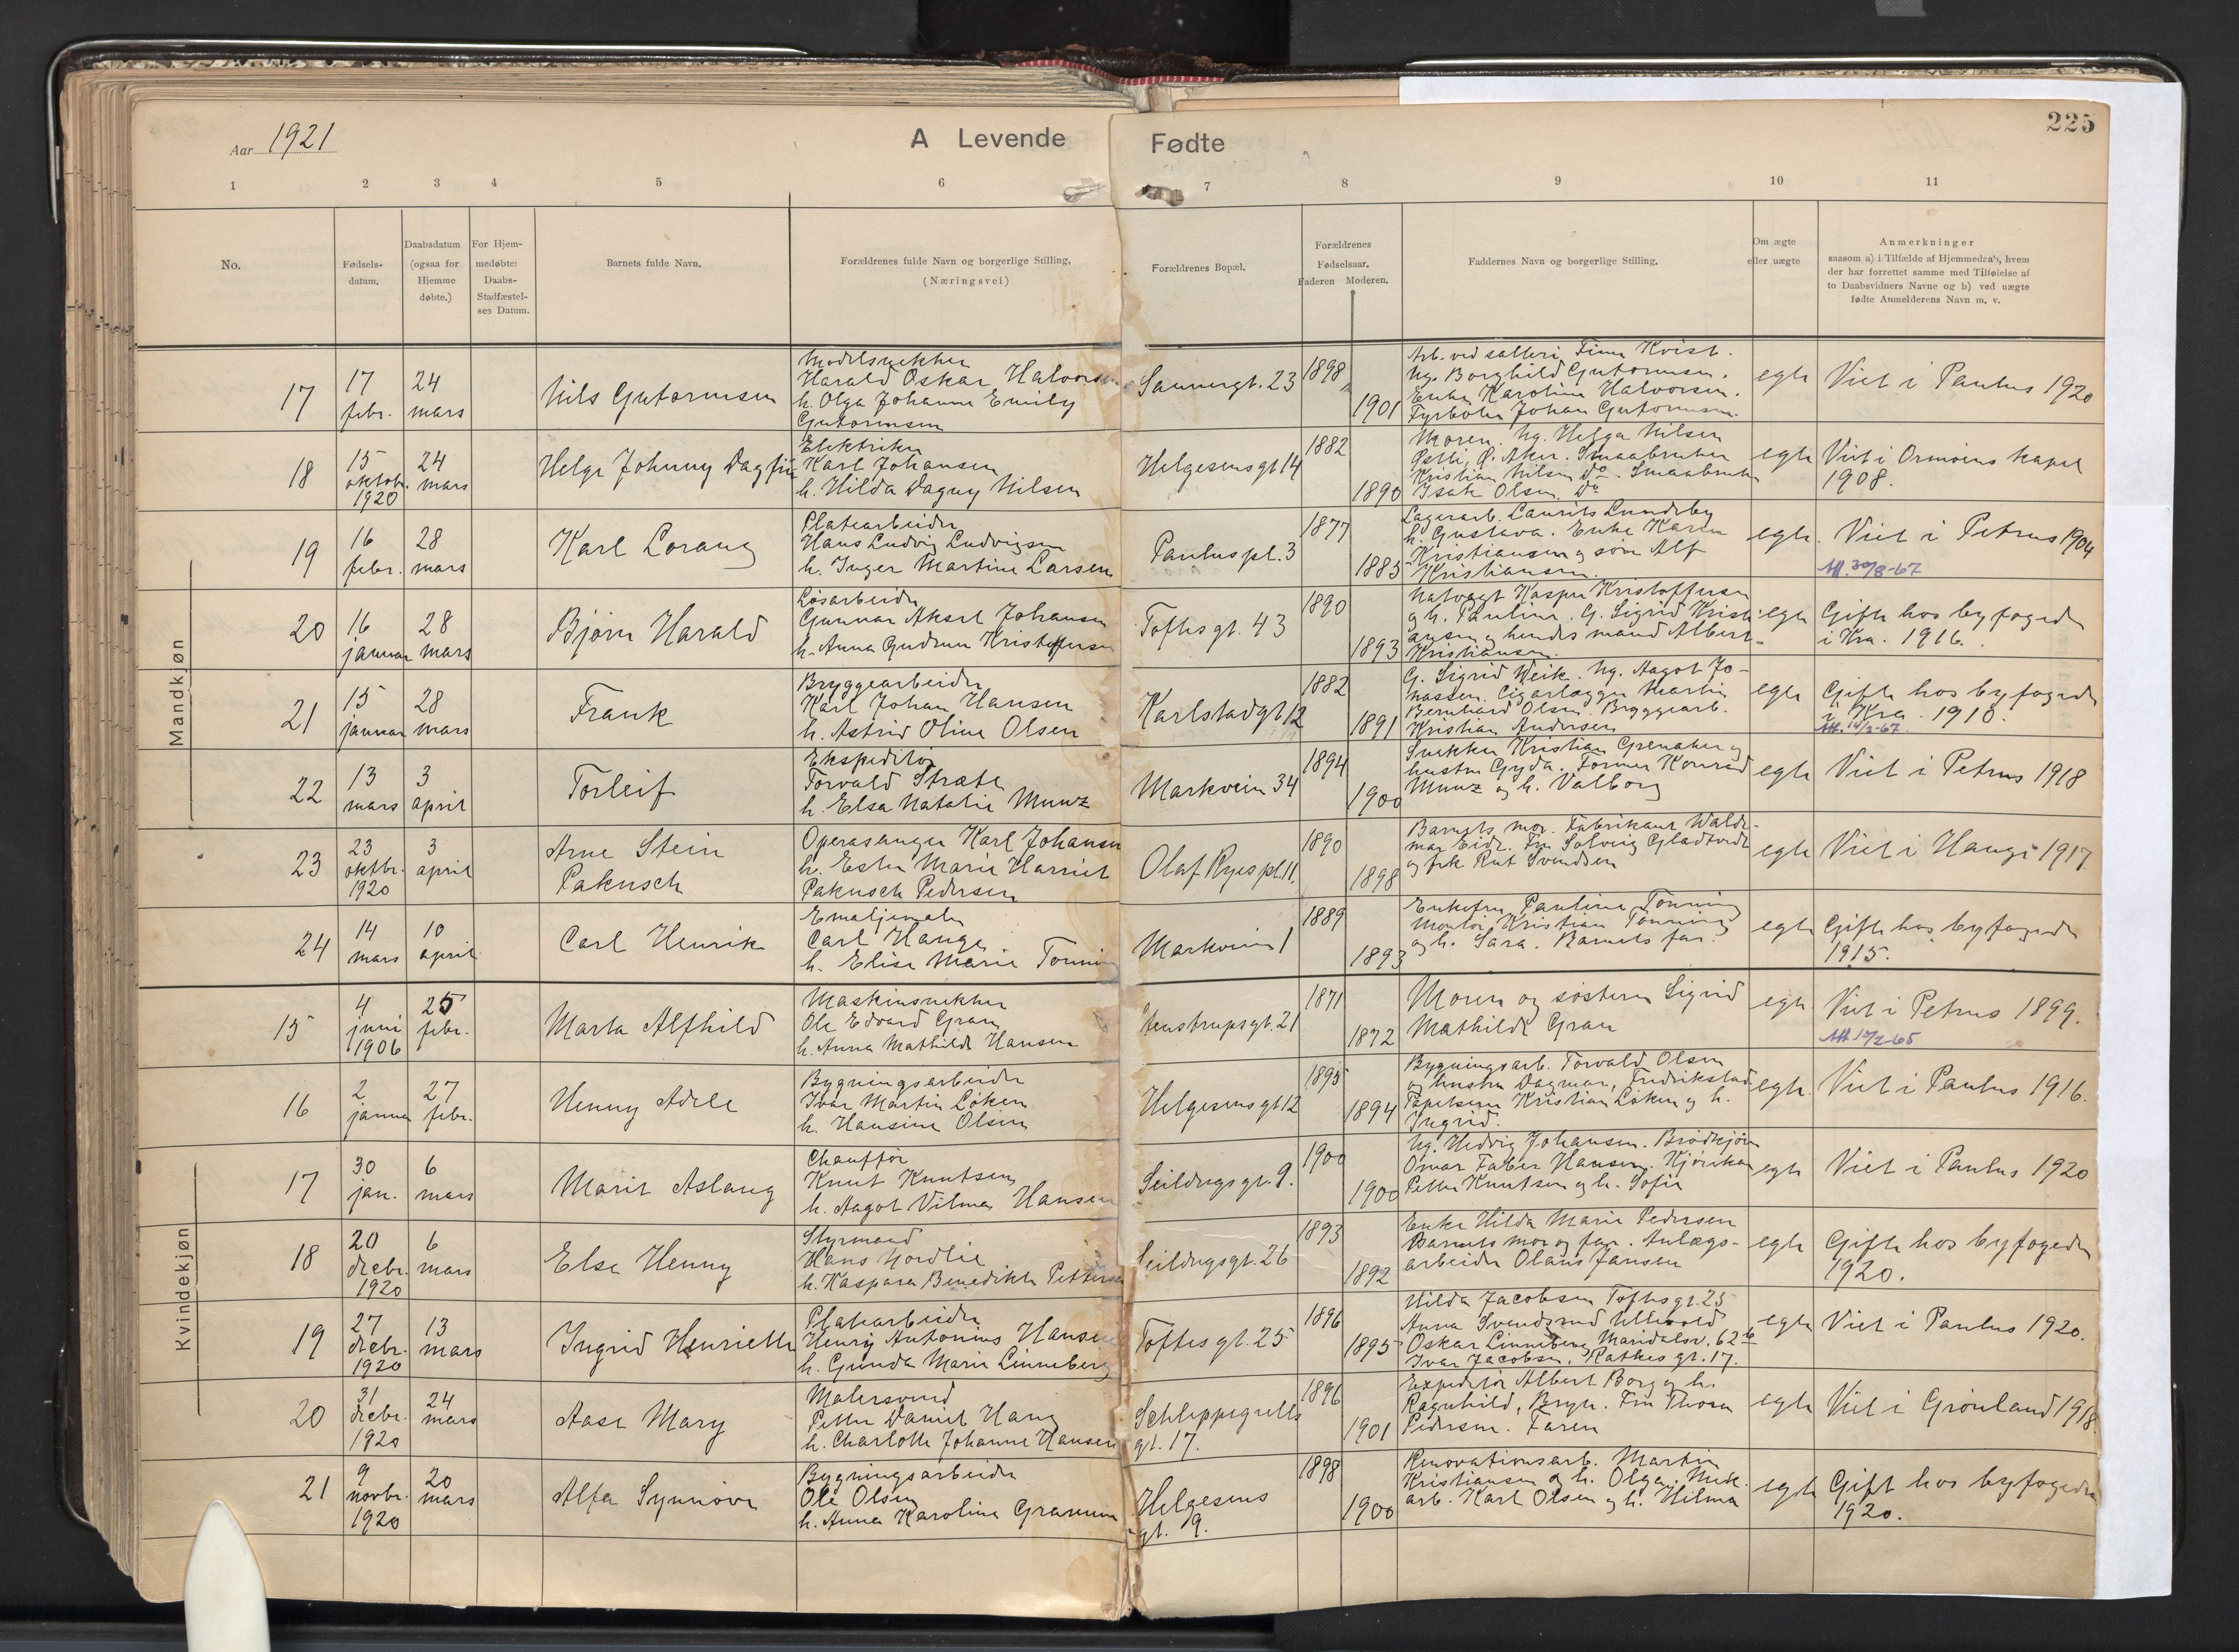 225
Aar 1921
A Levende Fødte
1 2 3 4 5 6 7 8 9 10 11
No.
Fødsels-
datum.
Daabsdatum
(ogsaa for
Hjemme
døbte.)
For Hjem-
medøbte:
Daabs-
Stadfæstel-
ses Datum.
Barnets fulde Navn.
Forældrenes fulde Navn og borgerlige Stilling,
(Næringsvei)
Forældrenes Bopæl.
Forældrenes
Fødselsaar.
Faderen Moderen.
Faddernes Navn og borgerlige Stilling.
Om ægte
eller uægte
Anmerkninger
saasom a) i Tilfælde af Hjemmedaab, hvem
der har forrettet samme med Tilføielse af
to Daabsvidners Navne og b) ved uægte
fødte Anmelderens Navn m. v.
Mandkjøn
17
17
febr.
24
mars
Nils Gutormsen
Modelsnekker
Harald Oskar Halvorsen
h. Olga Johanne Emily
Gutormsen
Sannergt. 23
1898
1901
Arb. ved salteri Finn Kvist.
Ug. Borghild Gutormsen.
Enke Karoline Halvorsen.
Fyrbøter Johan Gutormsen.
egte
Viet i Paulus 1920
18
15
oktob.
1920
24
mars
Helge Johnny Dagfin
Elektriker
Karl Johansen
h. Hilda Dagny Nilsen
Helgesensgt 14
1882
1890
Moren. Ug. Helga Nilsen
Østli, Ø. Aker. Smaabruker
Kristian Nilsen Do. Smaabruker
Isak Olsen Do
egte
Viet i Ormøens kapel
1908.
19
16
febr.
28
mars
Karl Lorang
Platearbeider
Hans Ludvig Ludvigsen
h. Inger Martine Larsen
Paulus pl. 3
1877
1885
Lagerarb. Laurits Lundeby
h. Gustava. Enke Karen
Kristiansen og søn Alf
Kristiansen.
egte.
Viet i Petrus 1904
Att. 30/8-67
20
16
januar
28
mars
Bjørn Harald
Løsarbeider
Gunnar Aksel Johansen
h. Anna Gudrun Kristoffersen
Toftes gt. 43
1890
1893
Natvagt Kasper Kristoffersen
og h. Pauline. G. Sigrid Kristi-
ansen og hendes mand Albert
Kristiansen.
egte
Gifte hos byfogden
i Kra. 1916.
21
15
januar
28
mars
Frank
Bryggearbeider
Karl Johan Hansen
h. Astrid Oline Olsen
Karlstadgt 12
1882
1891
G. Sigrid Weik. Ug. Aagot Jo-
nassen. Cigarlægger Martin
Bernhard Olsen. Bryggearb.
Kristian Andersen
egte
Gifte hos byfogden
i Kra. 1910.
22
13
mars
3
april
Torleif
Ekspeditør
Torvald Stræte
h. Elsa Natalie Munz
Markveien 34
1894
1900
Snekker Kristian Grenaker og
hustru Gyda. Former Konrad
Munz og h. Valborg
egte
Viet i Petrus 1918
23
23
oktbr.
1920
3
april
Arne Stein
Pakusch
Operasanger Karl Johansen
h. Ester Marie Harriet
Pakusch Pedersen
Olaf Ryes pl. 11.
1890
1898
Barnets mor. Fabrikant Walde-
mar Eide. Fru Solveig Gladtvedt
og frk Rut Svendsen
egte
Viet i Hauge 1917.
24
14
mars
10
april
Carl Henrik
Emaljemaler
Carl Hauge
h. Elise Marie Tønning
Markveien 1
1889
1893
Enkefru Pauline Tønning
Montør Kristian Tønning
og h. Sara. Barnets far.
egte
Gifte hos byfogden
1915.
Kvindekjøn
15
4
juni
1906
25
febr.
Marta Alfhild
Maskinsnekker
Ole Edvard Gran
h. Anna Mathilde Hansen
Stenstrupsgt. 21
1871
1872
Moren og søsteren Sigrid
Mathilde Gran
egte
Viet i Petrus 1899.
16
2
januar
27
febr.
Henny Adele
Bygningsarbeider
Ivar Martin Løken
h. Hansine Olsen
Helgesensgt 12
1895
1894
Bygningsarb. Torvald Olsen
og hustru Dagmar, Fredrikstad.
Kristian Løken og h.
Ingrid.
egte.
Viet i Paulus 1916.
17
30
jan.
6
mars
Marit Aslaug
Chauffør
Knut Knutsen
h. Aagot Vilma Hansen
Seildugsgt. 9.
1900
1900
Ug. Hedvig Johansen. Brødkjører
Omar Faber Hansen. Kjørekar
Petter Knutsen og h. Sofie
egte
Viet i Paulus 1920
18
20
decbr.
1920
6
mars
Else Henny
Styrmand
Hans Nordlie
h. Kaspara Benedikte Pettersen
Seildugsgt. 26
1893
1892
Enke Hilda Marie Pedersen
Barnets mor og far. Anlægs-
arbeider Olaus Jansen
egte
Gifte hos byfogden
1920.
19
27
decbr.
1920
13
mars
Ingrid Henriette
Platearbeider
Henry Antonius Hansen
h. Gunda Marie Linneberg
Toftes gt. 25
1896
1895
Hilda Jacobsen Toftesgt. 25
Anna Svendsrud Ullevold
Oskar Linneberg Maridalsv. 62 b
Ivar Jacobsen, Rathkes gt. 17.
egte
Viet i Paulus 1920.
20
31
decbr.
1920
24
mars
Aase Mary
Malersvend
Petter Daniel Haug
h. Charlotte Johanne Hansen
Schleppegrells
gt. 17.
1896
1901
Expeditør Albert Borg og h.
Ragnhild, Bryn. Fru Thora
Pedersen. Faren
egte
Viet i Grønland 1918.
21
9
novbr.
1920
20
mars
Alfa Synnøve
Bygningsarbeider
Ole Olsen
h. Anna Karoline Granum
Helgesens
gt. 9.
1898
1900
Renovationsarb. Martin
Kristiansen og h. Olga. Mek.
arb. Karl Olsen og h. Hilma
egte
Gift hos byfogden
1920.